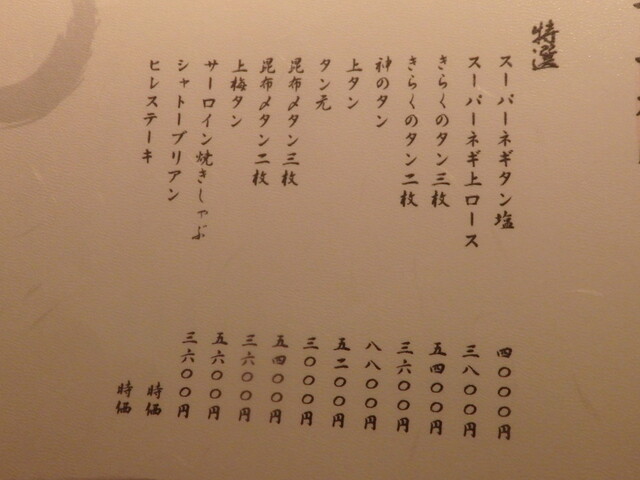 特選
スーパーネギタン塩 四〇〇〇円
スーパーネギ上ロース 三八〇〇円
きらくのタン三枚 五四〇〇円
きらくのタン二枚 三六〇〇円
神のタン 八八〇〇円
上タン 五二〇〇円
タン元 三〇〇〇円
昆布〆タン三枚 五四〇〇円
昆布〆タン二枚 三六〇〇円
上梅タン 五六〇〇円
サーロイン焼きしゃぶ 三六〇〇円
シャトーブリアン 時価
ヒレステーキ 時価